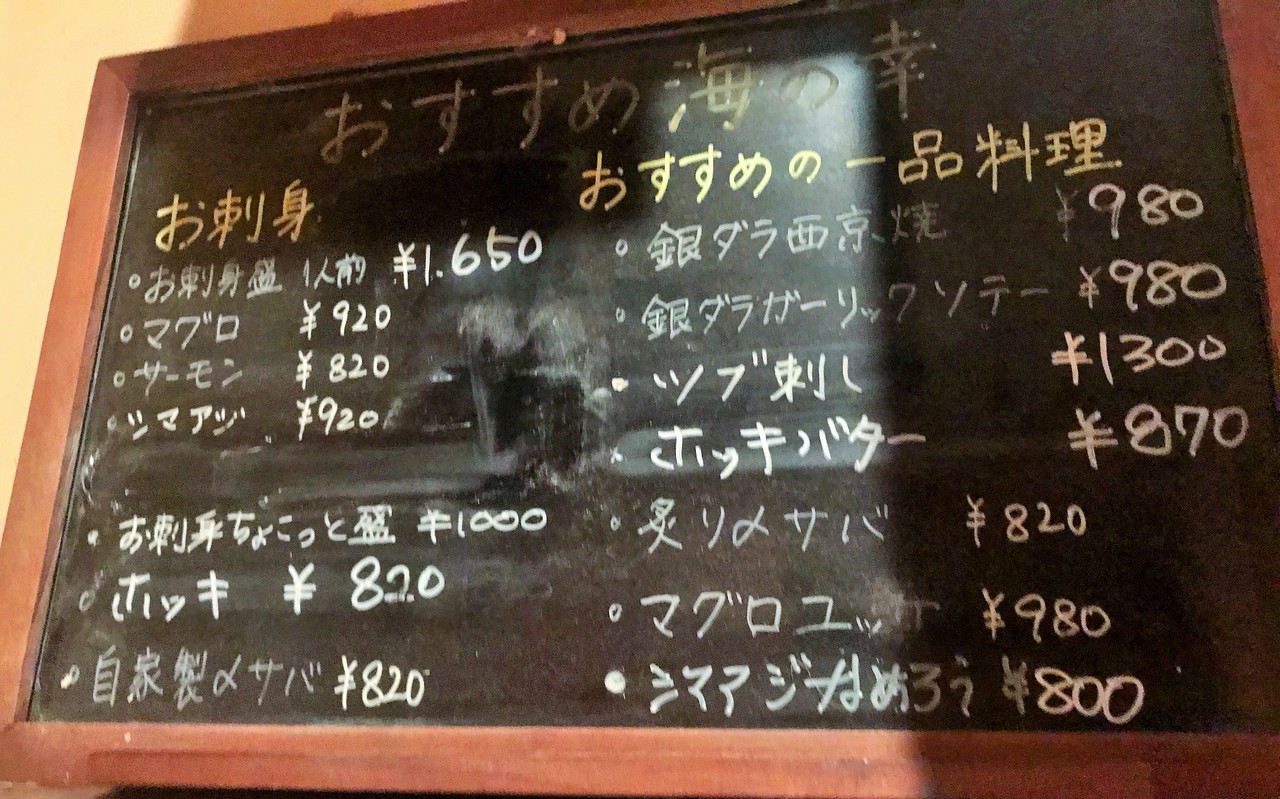 おすすめ海の幸
お刺身
・お刺身盛 1人前 ¥1.650
・マグロ ¥920
・サーモン ¥820
・シマアジ ¥920
・お刺身ちょこっと盛 ¥1000
・ホッキ ¥820
・自家製〆サバ ¥820
おすすめの一品料理
・銀ダラ西京焼 ¥980
・銀ダラガーリックソテー ¥980
・ツブ刺し ¥1300
・ホッキバター ¥870
・炙り〆サバ ¥820
・マグロユッケ ¥980
・シマアジなめろう ¥800